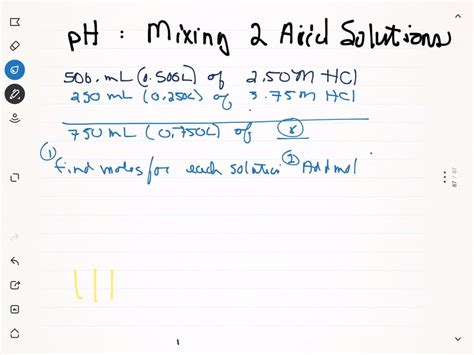 pH : Mixing 2 Acid Solutions
500. mL (0.500L) of 2.50M HCl
250 mL (0.250L) of 3.75M HCl
750 mL (0.750L) of
① find moles for each solution ② Add mol
87 / 87